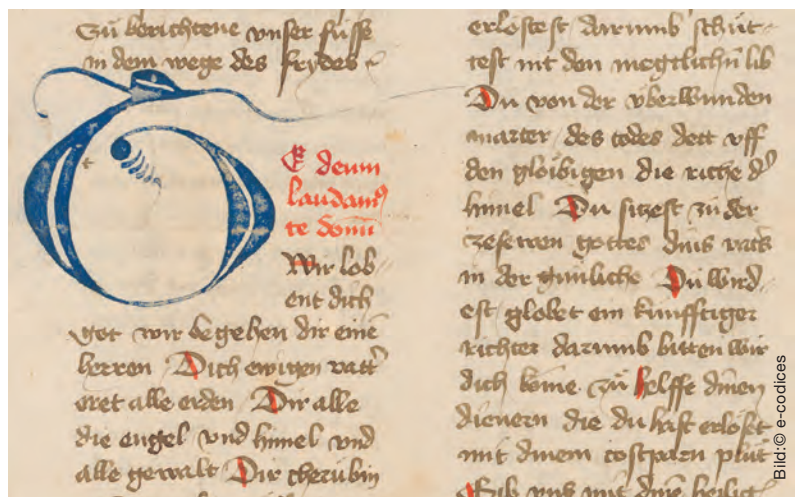 Zů berichtene vnser fůsse
in dem wege des frydes
Te deum
laudamꝰ
te dominū
Wir lob-
ent dich
got wir begehen dir einē
herren Dich ewigen vatt̛
eret alle erden Dir alle
die engel vnd himel vnd
alle gewalt Dir cherubin
erlöstest darumb schut-
test nit den megtlichen lib
Du von der vberwunden
marter des todes dett vff
den glöibigen die riche d̛
himel Du sitzest zů der
zeserwen gottes dins vatt̛s
in der günliche Du wird-
est globet ein künfftiger
richter darumb bitten wir
dich kome zů helffe dinen
dienern die du hast erlöset
mit dinem costparn plůt
Gib vns mit dinē
Bild:© e-codices